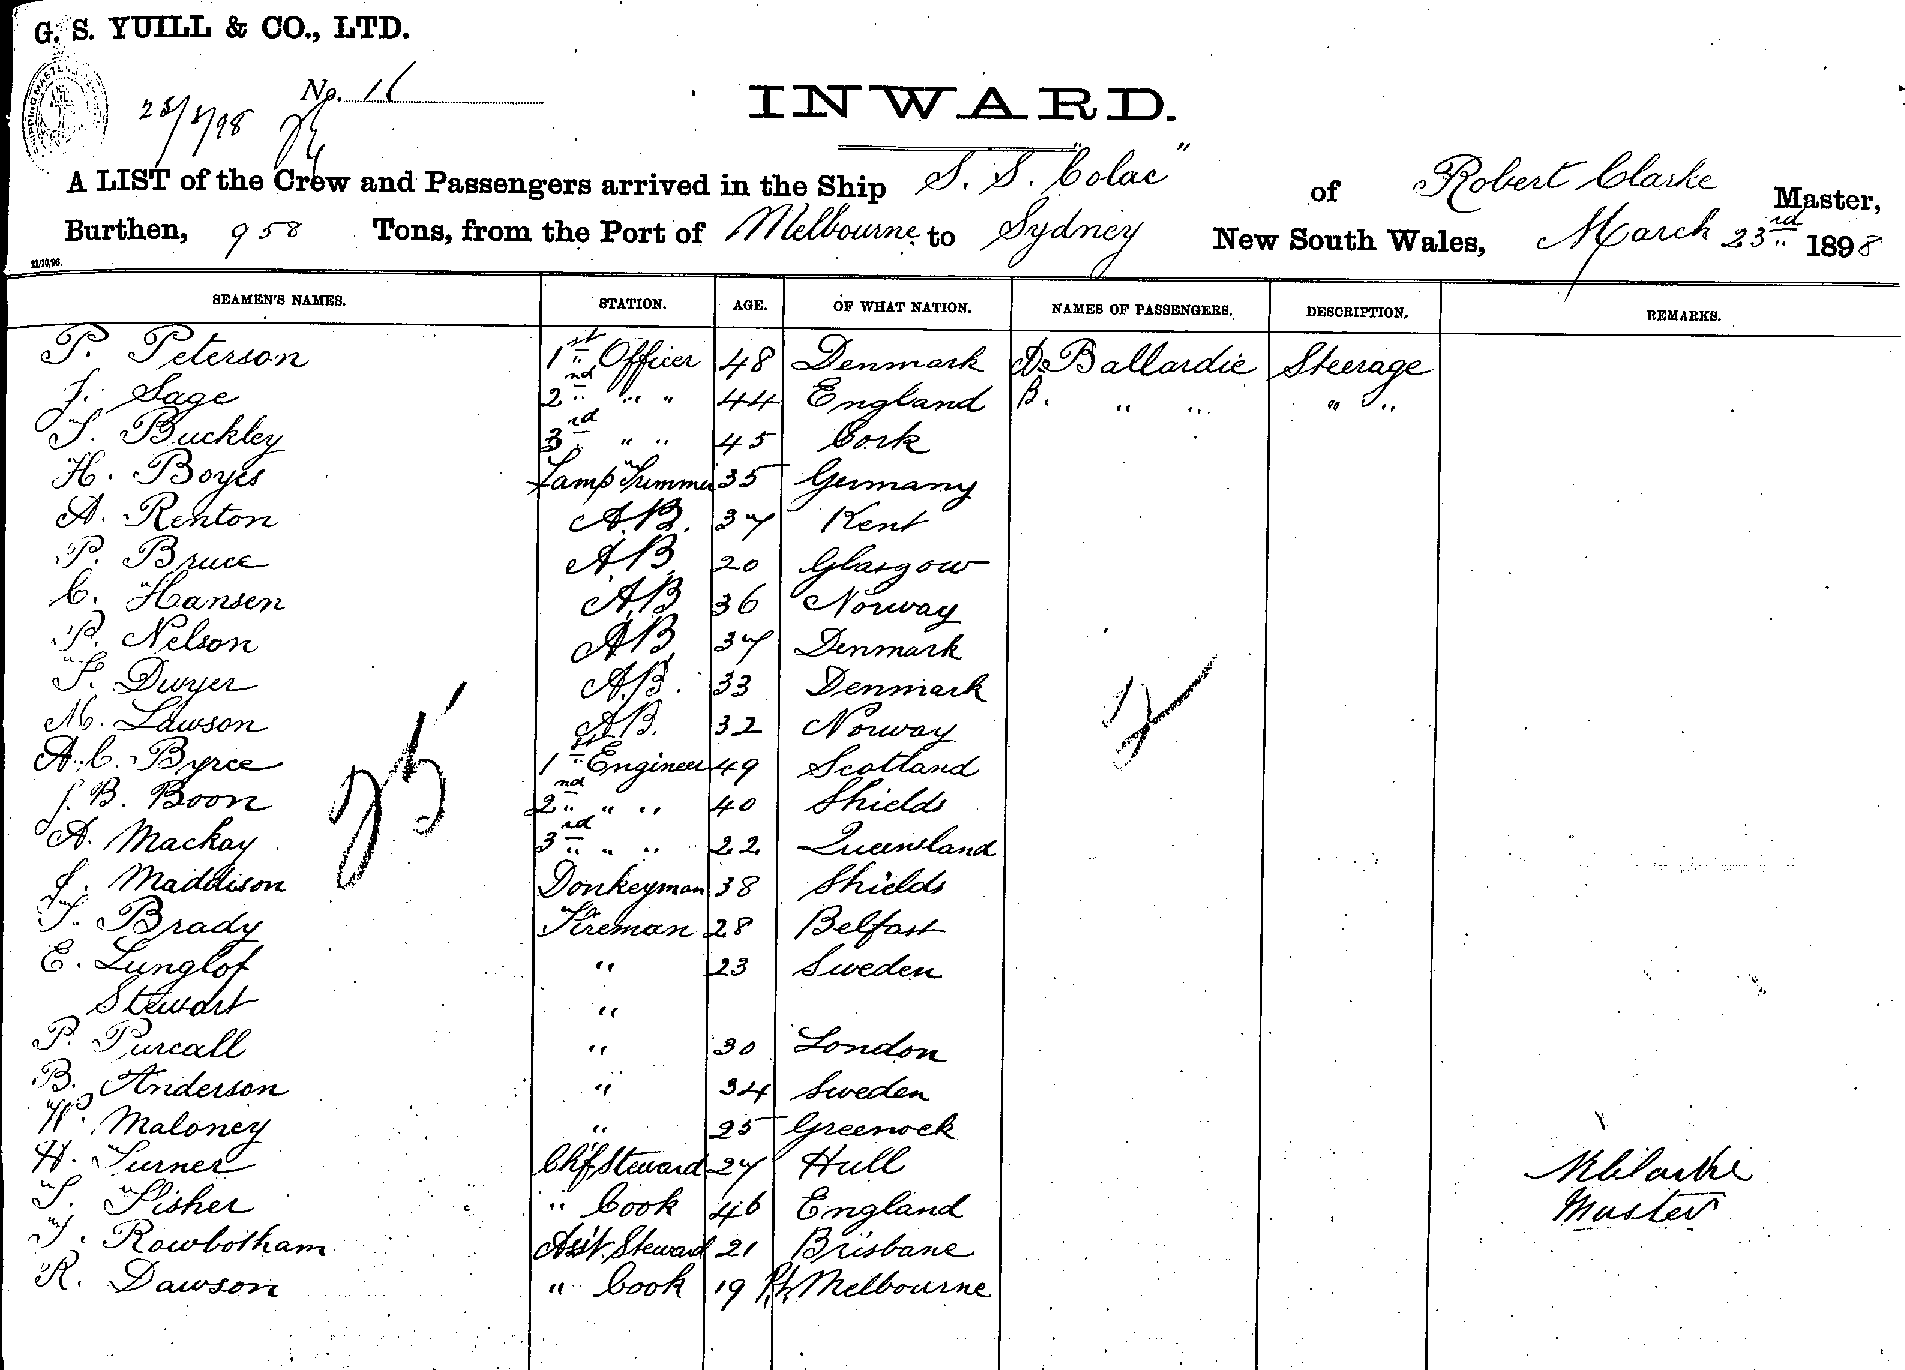 G. S. YUILL & CO., LTD.
No. 16
INWARD.
A LIST of the Crew and Passengers arrived in the Ship S. S. "Colac" of Robert Clarke Master,
Burthen, 958 Tons, from the Port of Melbourne to Sydney New South Wales, March 23rd 1898
21/10/96.
SEAMEN'S NAMES. STATION. AGE. OF WHAT NATION. NAMES OF PASSENGERS. DESCRIPTION. REMARKS.
P. Peterson 1st Officer 48 Denmark A. Ballardie Steerage
J. Sage 2nd " " 44 England B. " " " "
T. Buckley 3rd " " 45 Cork
H. Boyes Lamp Trimmer 35 Germany
A. Renton A.B. 37 Kent
P. Bruce A.B. 20 Glasgow
C. Hansen A.B. 36 Norway
P. Nelson A.B. 37 Denmark
F. Dwyer A.B. 33 Denmark
M. Lawson A.B. 32 Norway
A. C. Byrce 1st Engineer 49 Scotland
J. B. Boon 2nd " " 40 Shields
A. Mackay 3rd " " 22 Queensland
J. Maddison Donkeyman 38 Shields
T. Brady Fireman 28 Belfast
E. Lunglof " 23 Sweden
Stewart "
P. Purcall " 30 London
B. Anderson " 34 Sweden
W. Maloney " 25 Greenock
H. Turner Chf Steward 27 Hull
T. Fisher " Cook 46 England
T. Rowbotham Asst. Steward 21 Brisbane
R. Dawson " Cook 19 Pt. Melbourne
25
2
R Clarke
Master